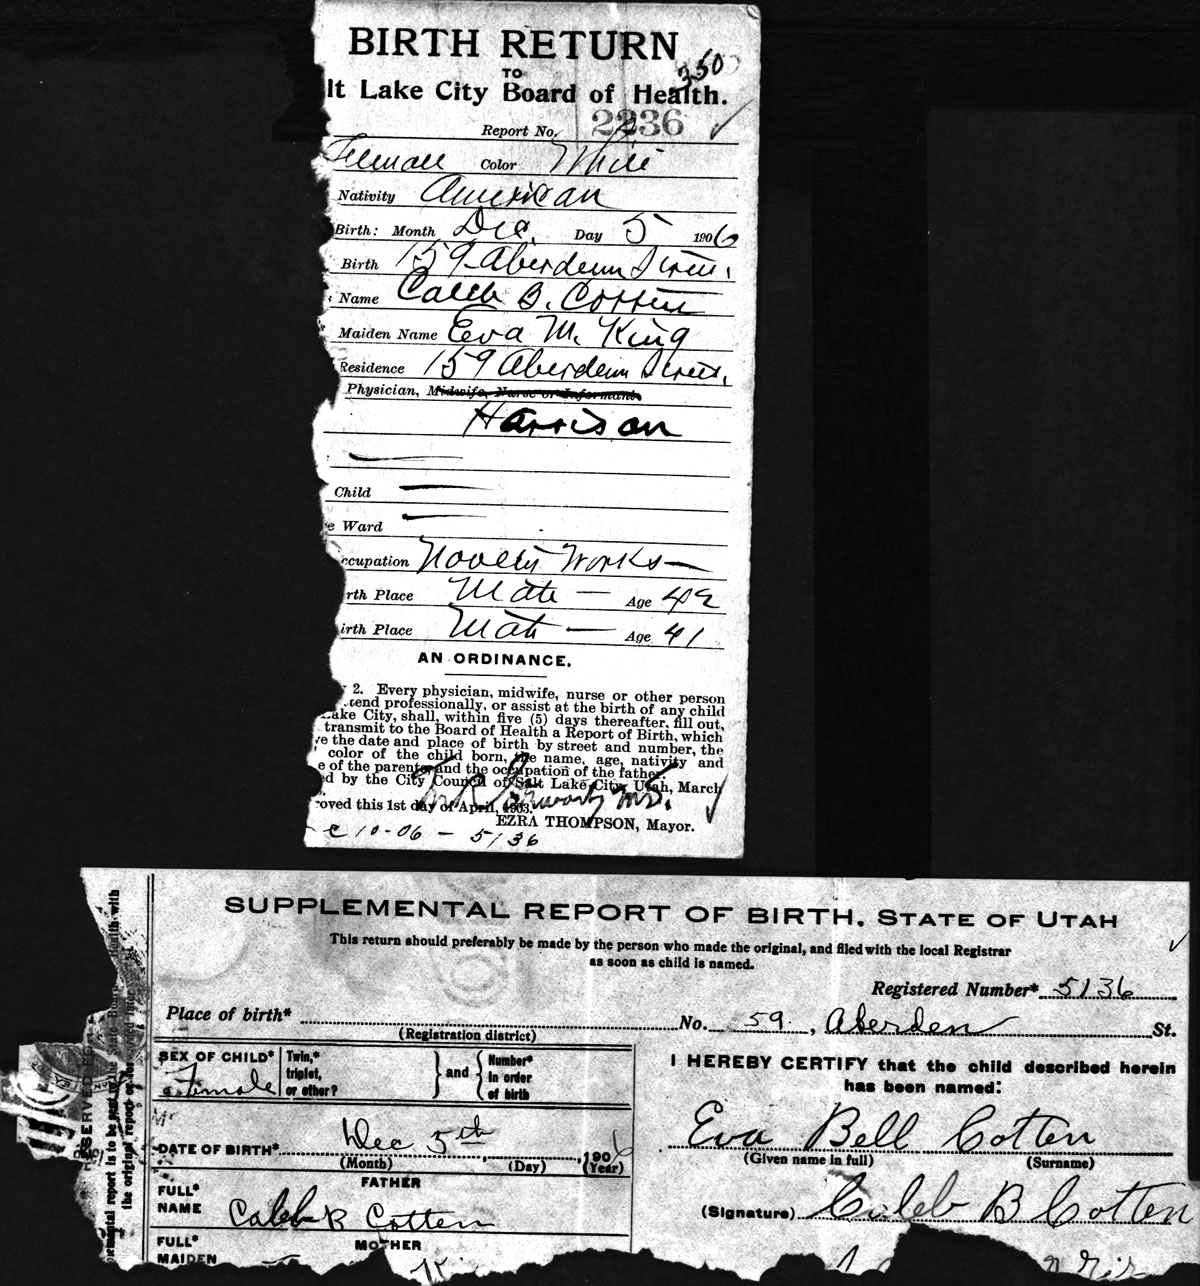 BIRTH RETURN
350
TO
lt Lake City Board of Health.
Report No. 2236
Female Color White
Nativity American
Birth: Month Dec. Day 5 1906
Birth 159 Aberdeen Street.
Name Caleb B. Cotten
Maiden Name Eva M. King
Residence 159 Aberdeen Street.
Physician, Midwife, Nurse or Informant
Harrison
Child
e Ward
ccupation Novelty Works
rth Place Utah Age 42
irth Place Utah Age 41
AN ORDINANCE.
2. Every physician, midwife, nurse or other person
tend professionally, or assist at the birth of any child
Lake City, shall, within five (5) days thereafter, fill out,
transmit to the Board of Health a Report of Birth, which
ve the date and place of birth by street and number, the
color of the child born, the name, age, nativity and
e of the parents and the occupation of the father.
ed by the City Council of Salt Lake City, Utah, March
roved this 1st day of April, 1903.
EZRA THOMPSON, Mayor.
c 10-06 - 5136
SUPPLEMENTAL REPORT OF BIRTH, STATE OF UTAH
This return should preferably be made by the person who made the original, and filed with the local Registrar
as soon as child is named.
Registered Number* 5136
Place of birth* No. 59, Aberden St.
(Registration district)
SEX OF CHILD* Female
Twin,* triplet, or other?
and
Number* in order of birth
I HEREBY CERTIFY that the child described herein
has been named:
DATE OF BIRTH* Dec 5th, 1906
(Month) (Day) (Year)
Eva Bell Cotten
(Given name in full) (Surname)
FATHER
FULL* NAME Caleb B Cotten
(Signature) Caleb B Cotten
MOTHER
FULL* MAIDEN